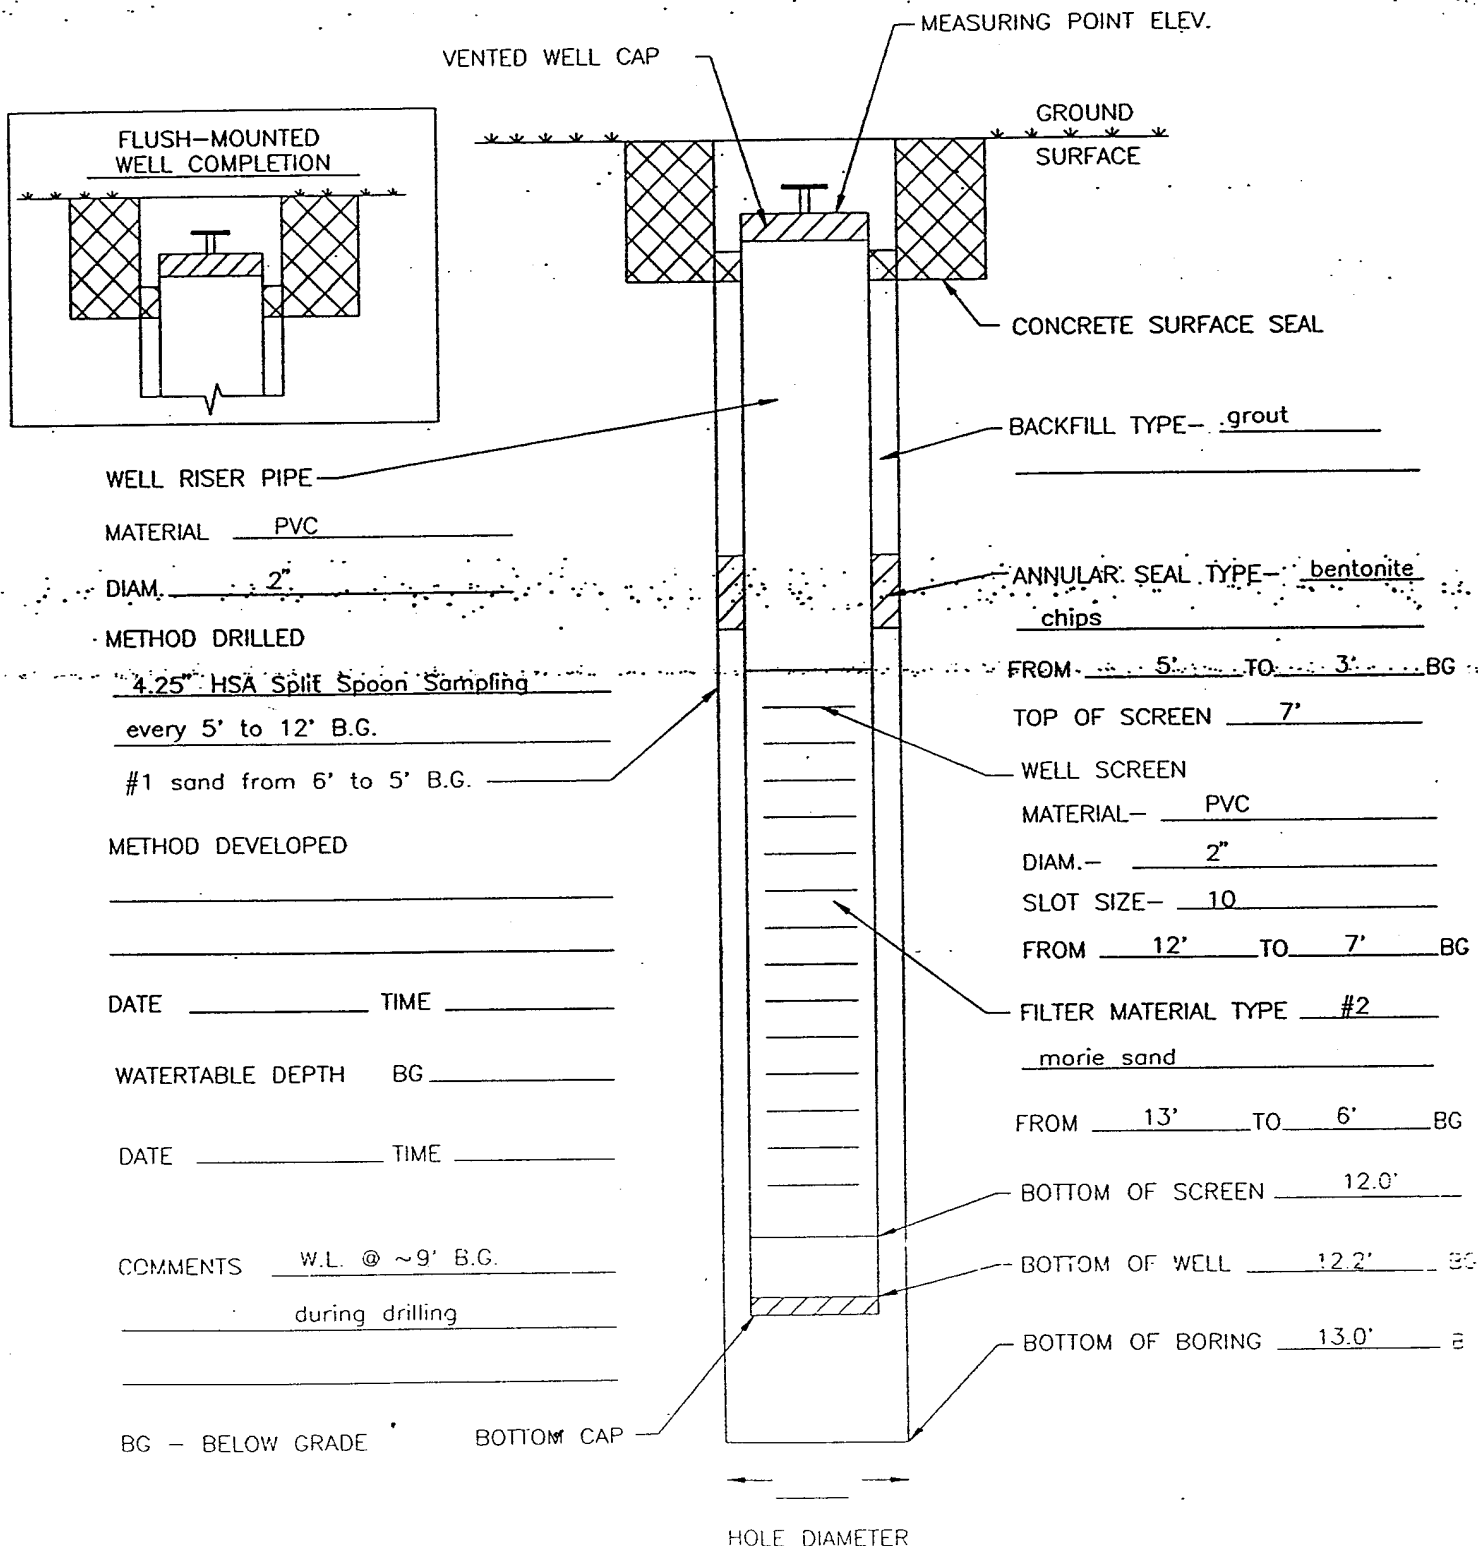 MEASURING POINT ELEV.
VENTED WELL CAP
FLUSH-MOUNTED
WELL COMPLETION
GROUND
SURFACE
CONCRETE SURFACE SEAL
BACKFILL TYPE- grout
WELL RISER PIPE
MATERIAL PVC
DIAM. 2"
METHOD DRILLED
4.25" HSA Split Spoon Sampling
every 5' to 12' B.G.
#1 sand from 6' to 5' B.G.
METHOD DEVELOPED
DATE TIME
WATERTABLE DEPTH BG
DATE TIME
COMMENTS W.L. @ ~9' B.G.
during drilling
BG - BELOW GRADE
BOTTOM CAP
ANNULAR SEAL TYPE- bentonite
chips
FROM 5' TO 3' BG
TOP OF SCREEN 7'
WELL SCREEN
MATERIAL- PVC
DIAM.- 2"
SLOT SIZE- 10
FROM 12' TO 7' BG
FILTER MATERIAL TYPE #2
morie sand
FROM 13' TO 6' BG
BOTTOM OF SCREEN 12.0'
BOTTOM OF WELL 12.2' BG
BOTTOM OF BORING 13.0' B
HOLE DIAMETER